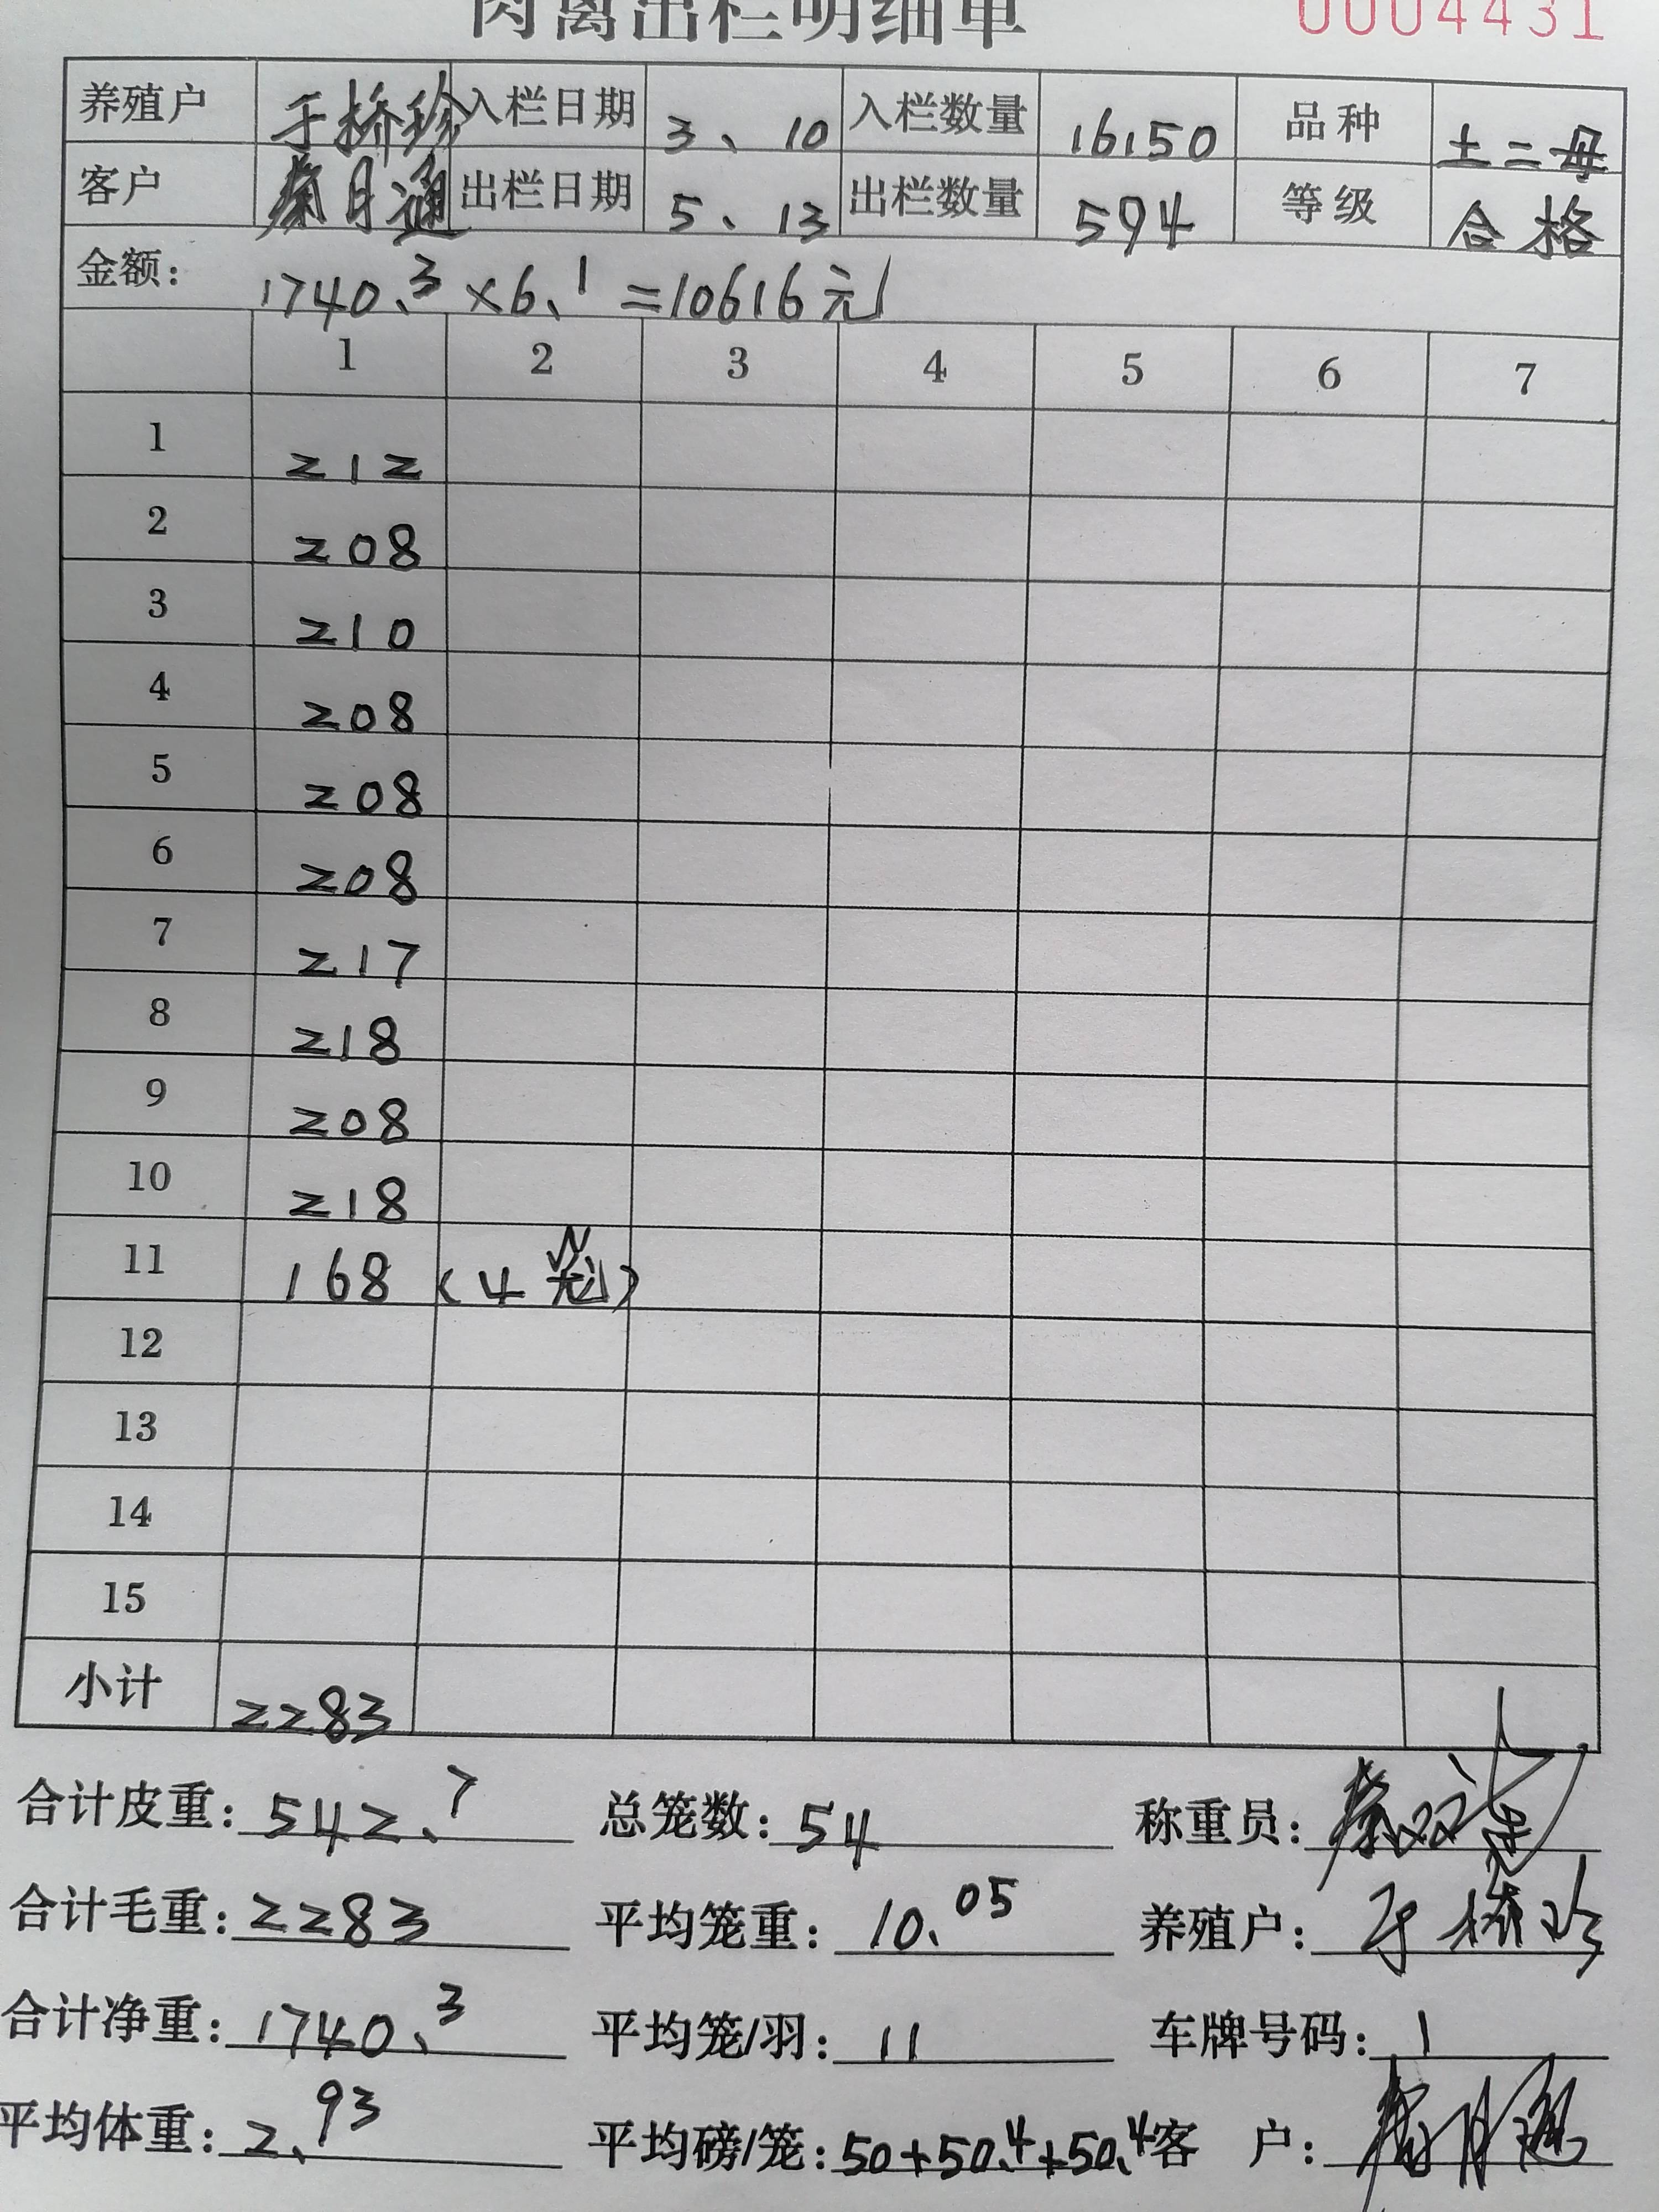 肉禽出栏明细单 0004431
养殖户 于桥珍 入栏日期 3、10 入栏数量 16150 品种 土二母
客户 秦月通 出栏日期 5、13 出栏数量 594 等级 合格
金额: 1740.3×6.1=10616元
1 2 3 4 5 6 7
1 212
2 208
3 210
4 208
5 208
6 208
7 217
8 218
9 208
10 218
11 168 (4笼)
12
13
14
15
小计 2283
合计皮重: 542.7 总笼数: 54 称重员:
合计毛重: 2283 平均笼重: 10.05 养殖户: 于桥珍
合计净重: 1740.3 平均笼/羽: 11 车牌号码: 1
平均体重: 2.93 平均磅/笼: 50+50.4+50.4 客 户: 秦月通